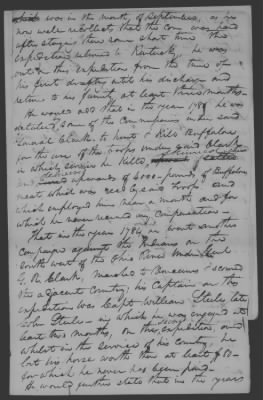 which was in the month of September, as he
now well recollects that the corn was hard
after staying there some short time the
expedition returned to Kentucky, he was
out on this expedition from the time of
his first drafting until his discharge and
return to his family, at least three months.
He would add that in the year 1780 he was
detailed some of the Commissaries in the said
General Clark to hunt & kill Buffaloe
for the use of the troops under said Clark
in which service he killed,
and upwards of 4000 pounds, of Buffaloe
meat which was used by said troops and
which employed him near a month and for
which he never received any Compensation
That in the year 1786 he went another
Campaign against the Indians on the
south west of the Ohio River under Genl
G. R. Clark, marched to Vincennes & scoured
the adjacent Country, his Captain on this
expedition was Capt William Steele late
John Steele in which he was engaged at
least three months, on this expedition, and
whilst in the service of his country, he
lost his horse worth then at least
for which he never has been paid.
He would further state that in the years